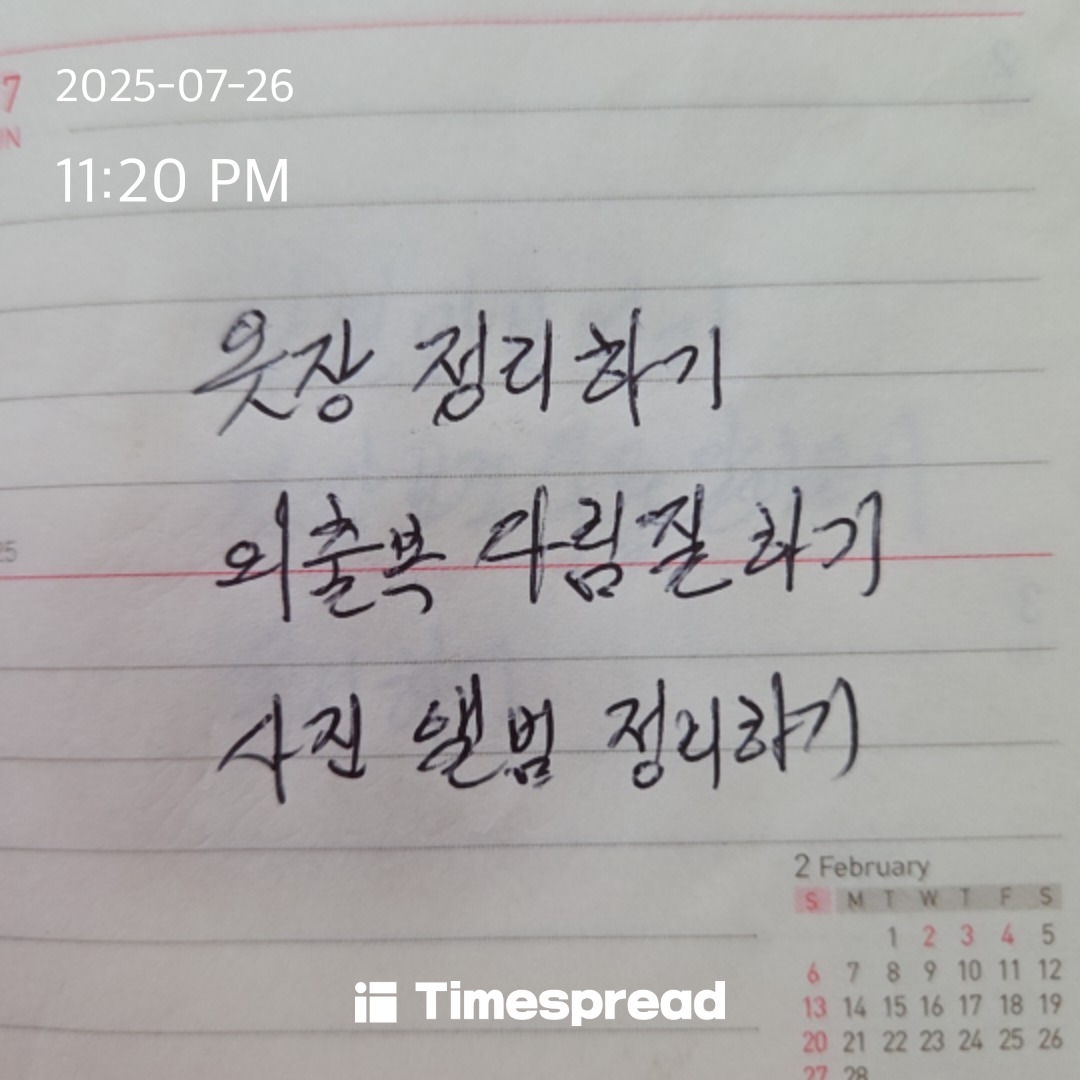 7
2025-07-26
UN
11:20 PM
옷장 정리하기
25
외출복 다림질 하기
사진 앨범 정리하기
2 February
S M T W T F S
1 2 3 4 5
6 7 8 9 10 11 12
13 14 15 16 17 18 19
20 21 22 23 24 25 26
27 28
Timespread